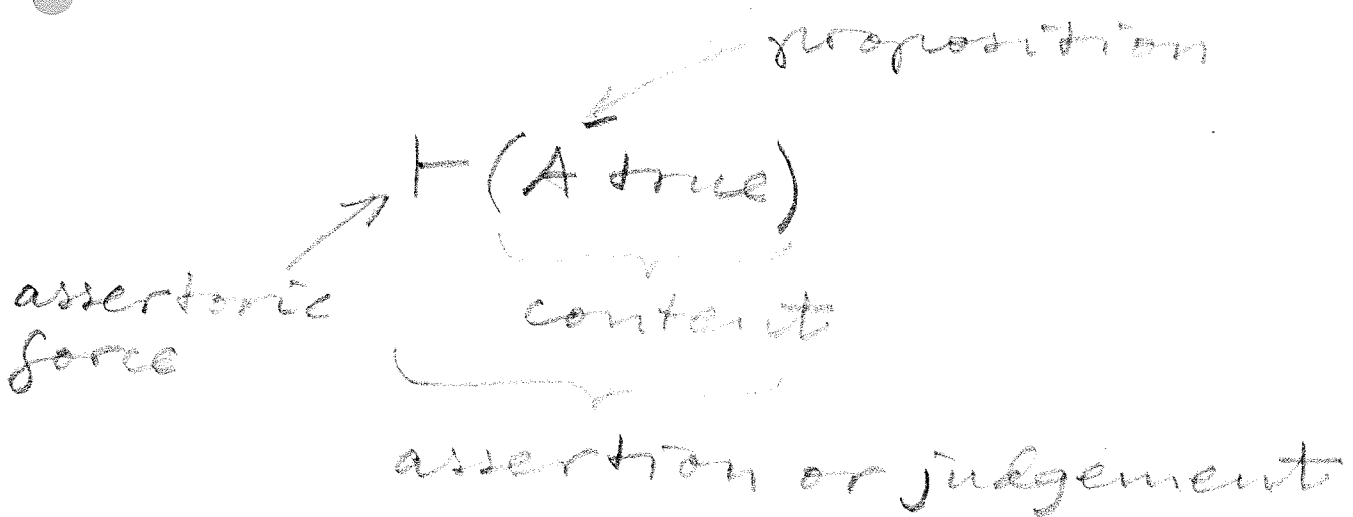 proposition
⊢ (A true)
assertoric
force
content
assertion or judgement